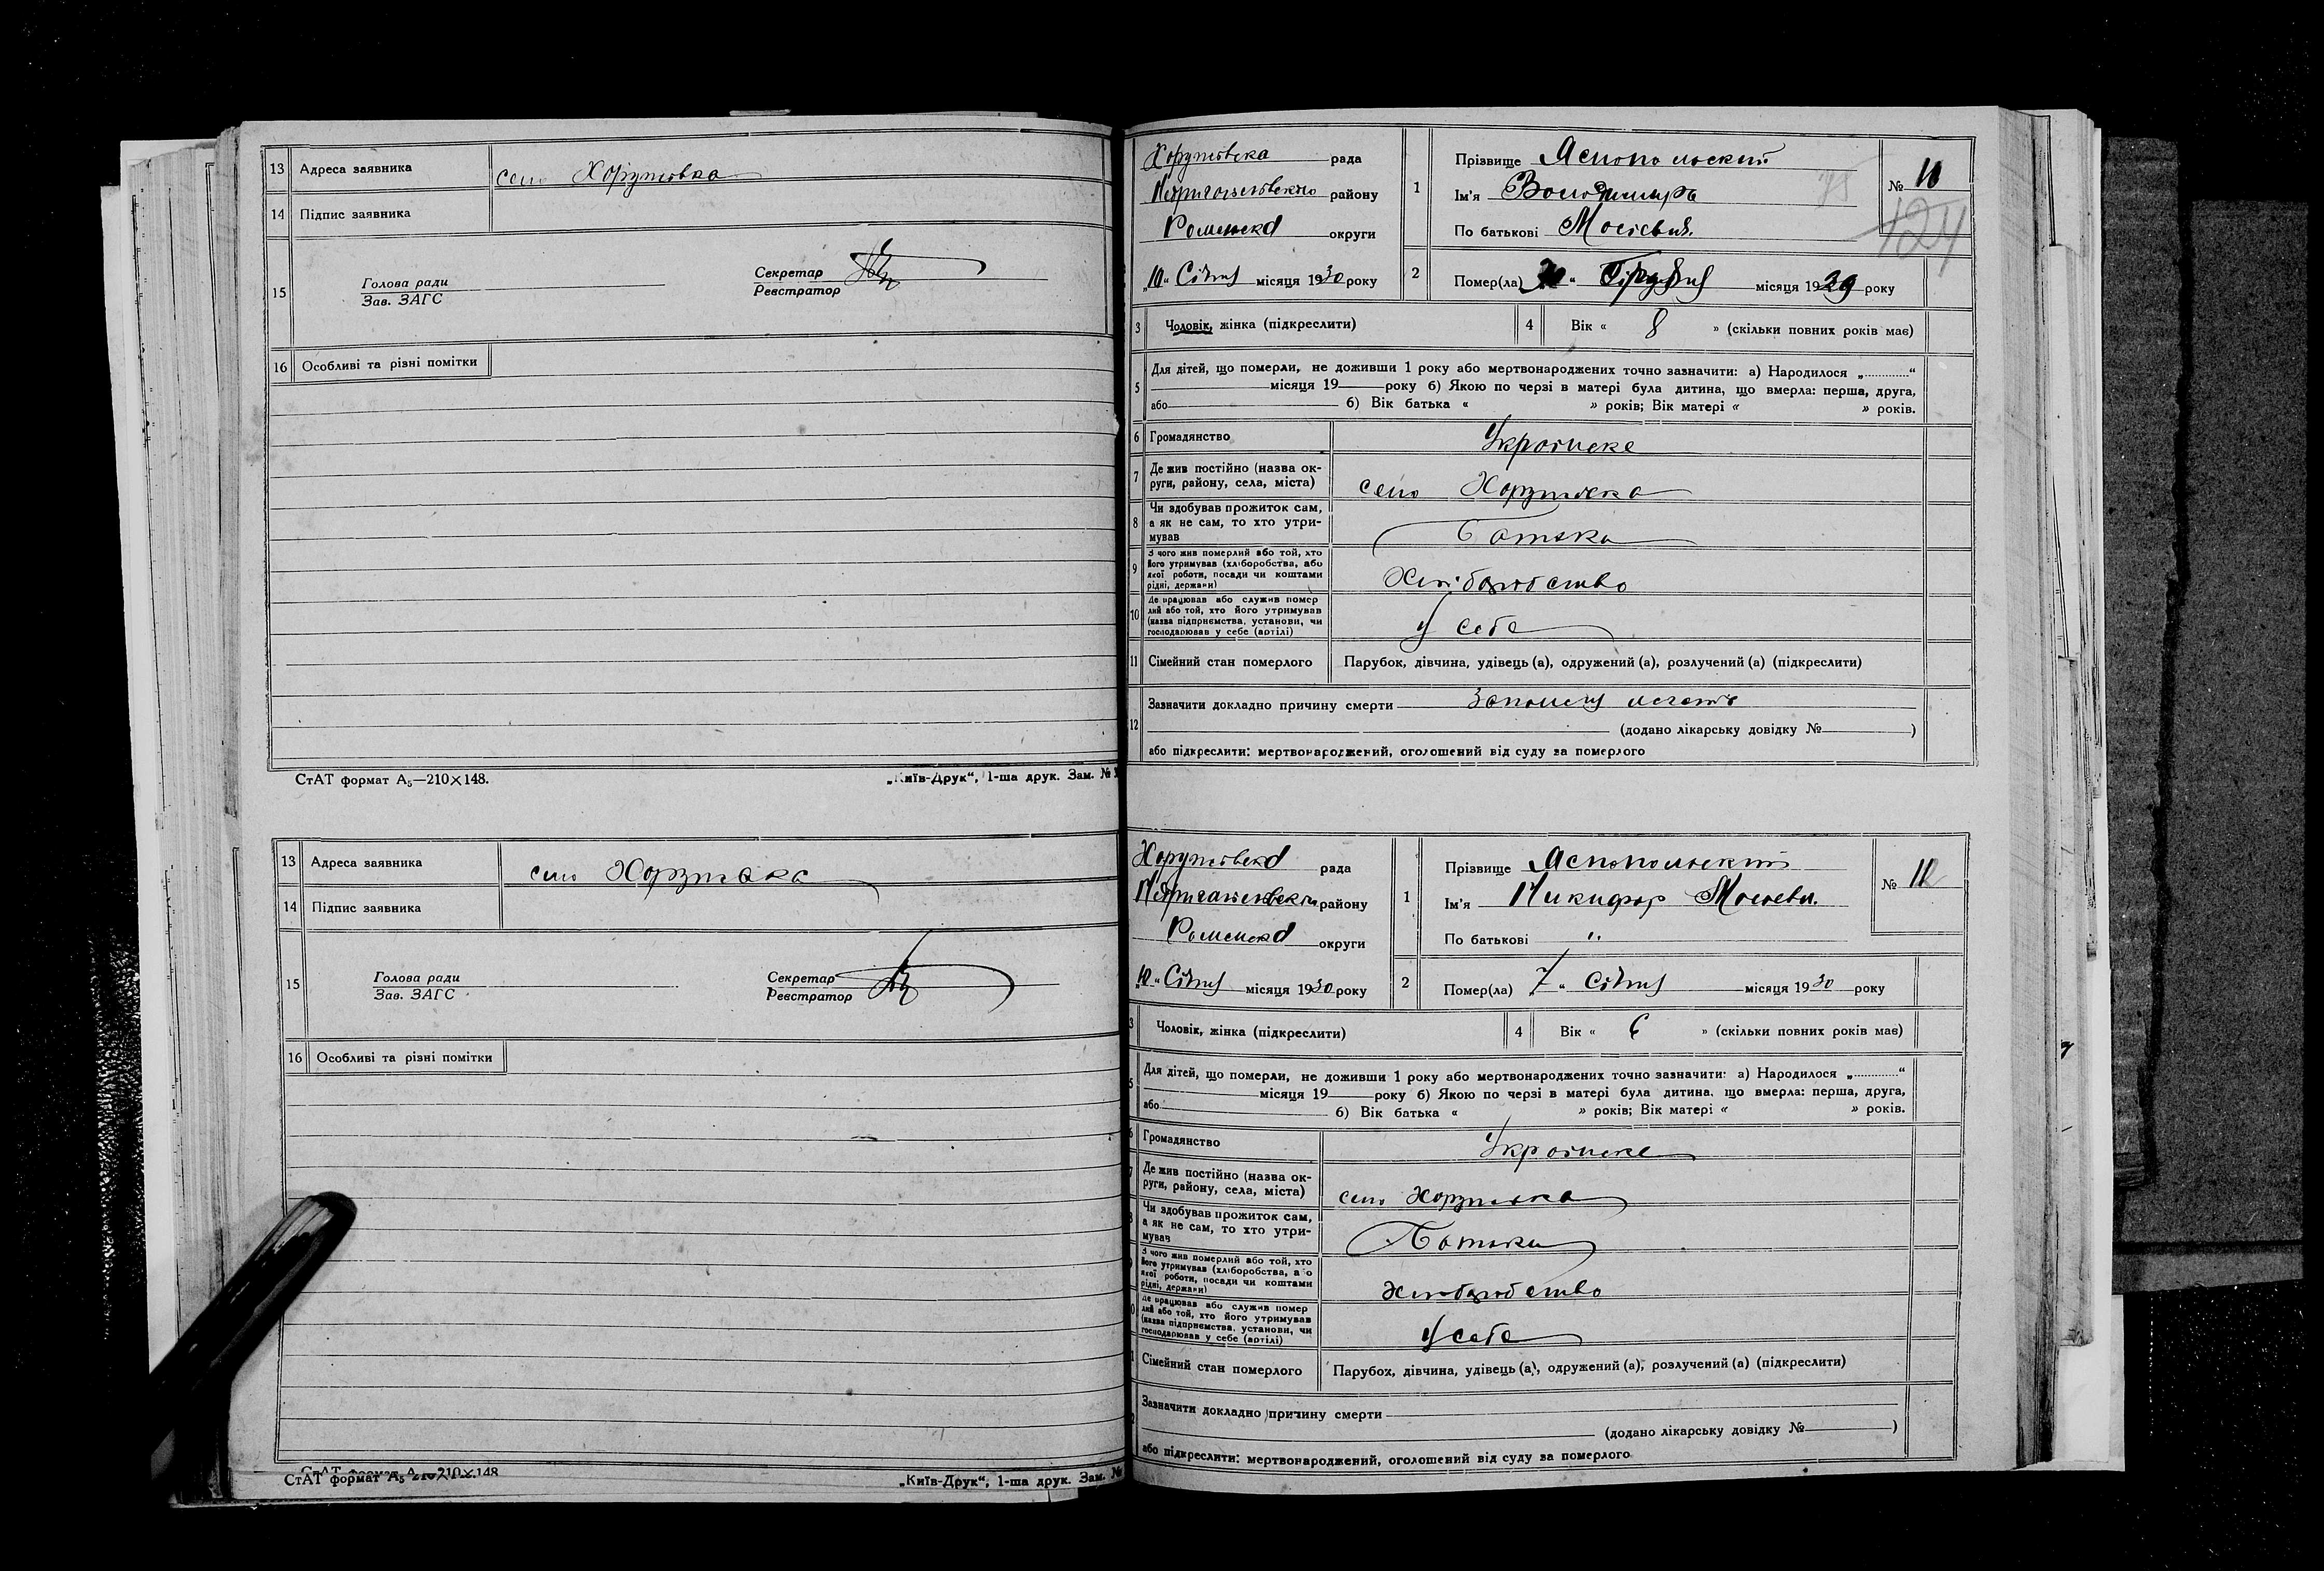 13 Адреса заявника село Хоружовка
14 Підпис заявника
15 Голова ради Секретар
Зав. ЗАГС Реєстратор
16 Особливі та різні помітки
СтАТ формат А5—210×148. „Київ-Друк“, 1-ша друк. Зам. №
13 Адреса заявника село Хоружовка
14 Підпис заявника
15 Голова ради Секретар
Зав. ЗАГС Реєстратор
16 Особливі та різні помітки
СтАТ формат А5—210×148
СтАТ формат А5 210×148 „Київ-Друк“, 1-ша друк. Зам. №
Хоружовська рада
району
Роменськ округи
„10“ Січня місяця 1930 року
1 Прізвище Яснопольский
Ім'я Володимир
По батькові Мосієвич.
№ 11
124
2 Помер(ла) “ Грудня місяця 1929 року
3 Чоловік, жінка (підкреслити) 4 Вік « 8 » (скільки повних років має)
5 Для дітей, що померли, не доживши 1 року або мертвонароджених точно зазначити: а) Народилося „............“
місяця 19 року б) Якою по черзі в матері була дитина, що вмерла: перша, друга,
або б) Вік батька « » років; Вік матері « » років.
6 Громадянство Украінске
7 Де жив постійно (назва ок-
руги, району, села, міста) село Хоружовка
8 Чи здобував прожиток сам,
а як не сам, то хто утри-
мував Батько
9 З чого жив померлий або той, хто
його утримував (хліборобства, або
якої роботи, посади чи коштами
рідні, держави) Хліборобство
10 Де працював або служив помер
лий або той, хто його утримував
(назва підприємства, установи, чи
господарював у себе (артілі) у себе
11 Сімейний стан померлого Парубок, дівчина, удівець (а), одружений (а), розлучений (а) (підкреслити)
12 Зазначити докладно причину смерти
(додано лікарську довідку № )
або підкреслити: мертвонароджений, оголошений від суду за померлого
Хоружовськ рада
району
Роменськ округи
„10“ Січня місяця 1930 року
1 Прізвище Яснопольский
Ім'я Никифор Мосієви.
По батькові "
№ 12
2 Помер(ла) 7 “ Січня місяця 1930 року
3 Чоловік, жінка (підкреслити) 4 Вік « 6 » (скільки повних років має)
5 Для дітей, що померли, не доживши 1 року або мертвонароджених точно зазначити: а) Народилося „............“
місяця 19 року б) Якою по черзі в матері була дитина, що вмерла: перша, друга,
або б) Вік батька « » років; Вік матері « » років.
6 Громадянство Украінске
7 Де жив постійно (назва ок-
руги, району, села, міста) село Хоружовка
Чи здобував прожиток сам,
а як не сам, то хто утри-
мував Батько
З чого жив померлий або той, хто
його утримував (хліборобства, або
якої роботи, посади чи коштами
рідні, держави) Хліборобство
0 Де працював або служив помер
лий або той, хто його утримував
(назва підприємства, установи, чи
господарював у себе (артілі) у себе
Сімейний стан померлого Парубок, дівчина, удівець (а), одружений (а), розлучений (а) (підкреслити)
Зазначити докладно причину смерти
(додано лікарську довідку № )
або підкреслити: мертвонароджений, оголошений від суду за померлого